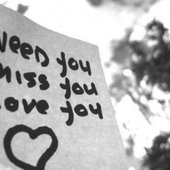 need you
miss you
love you